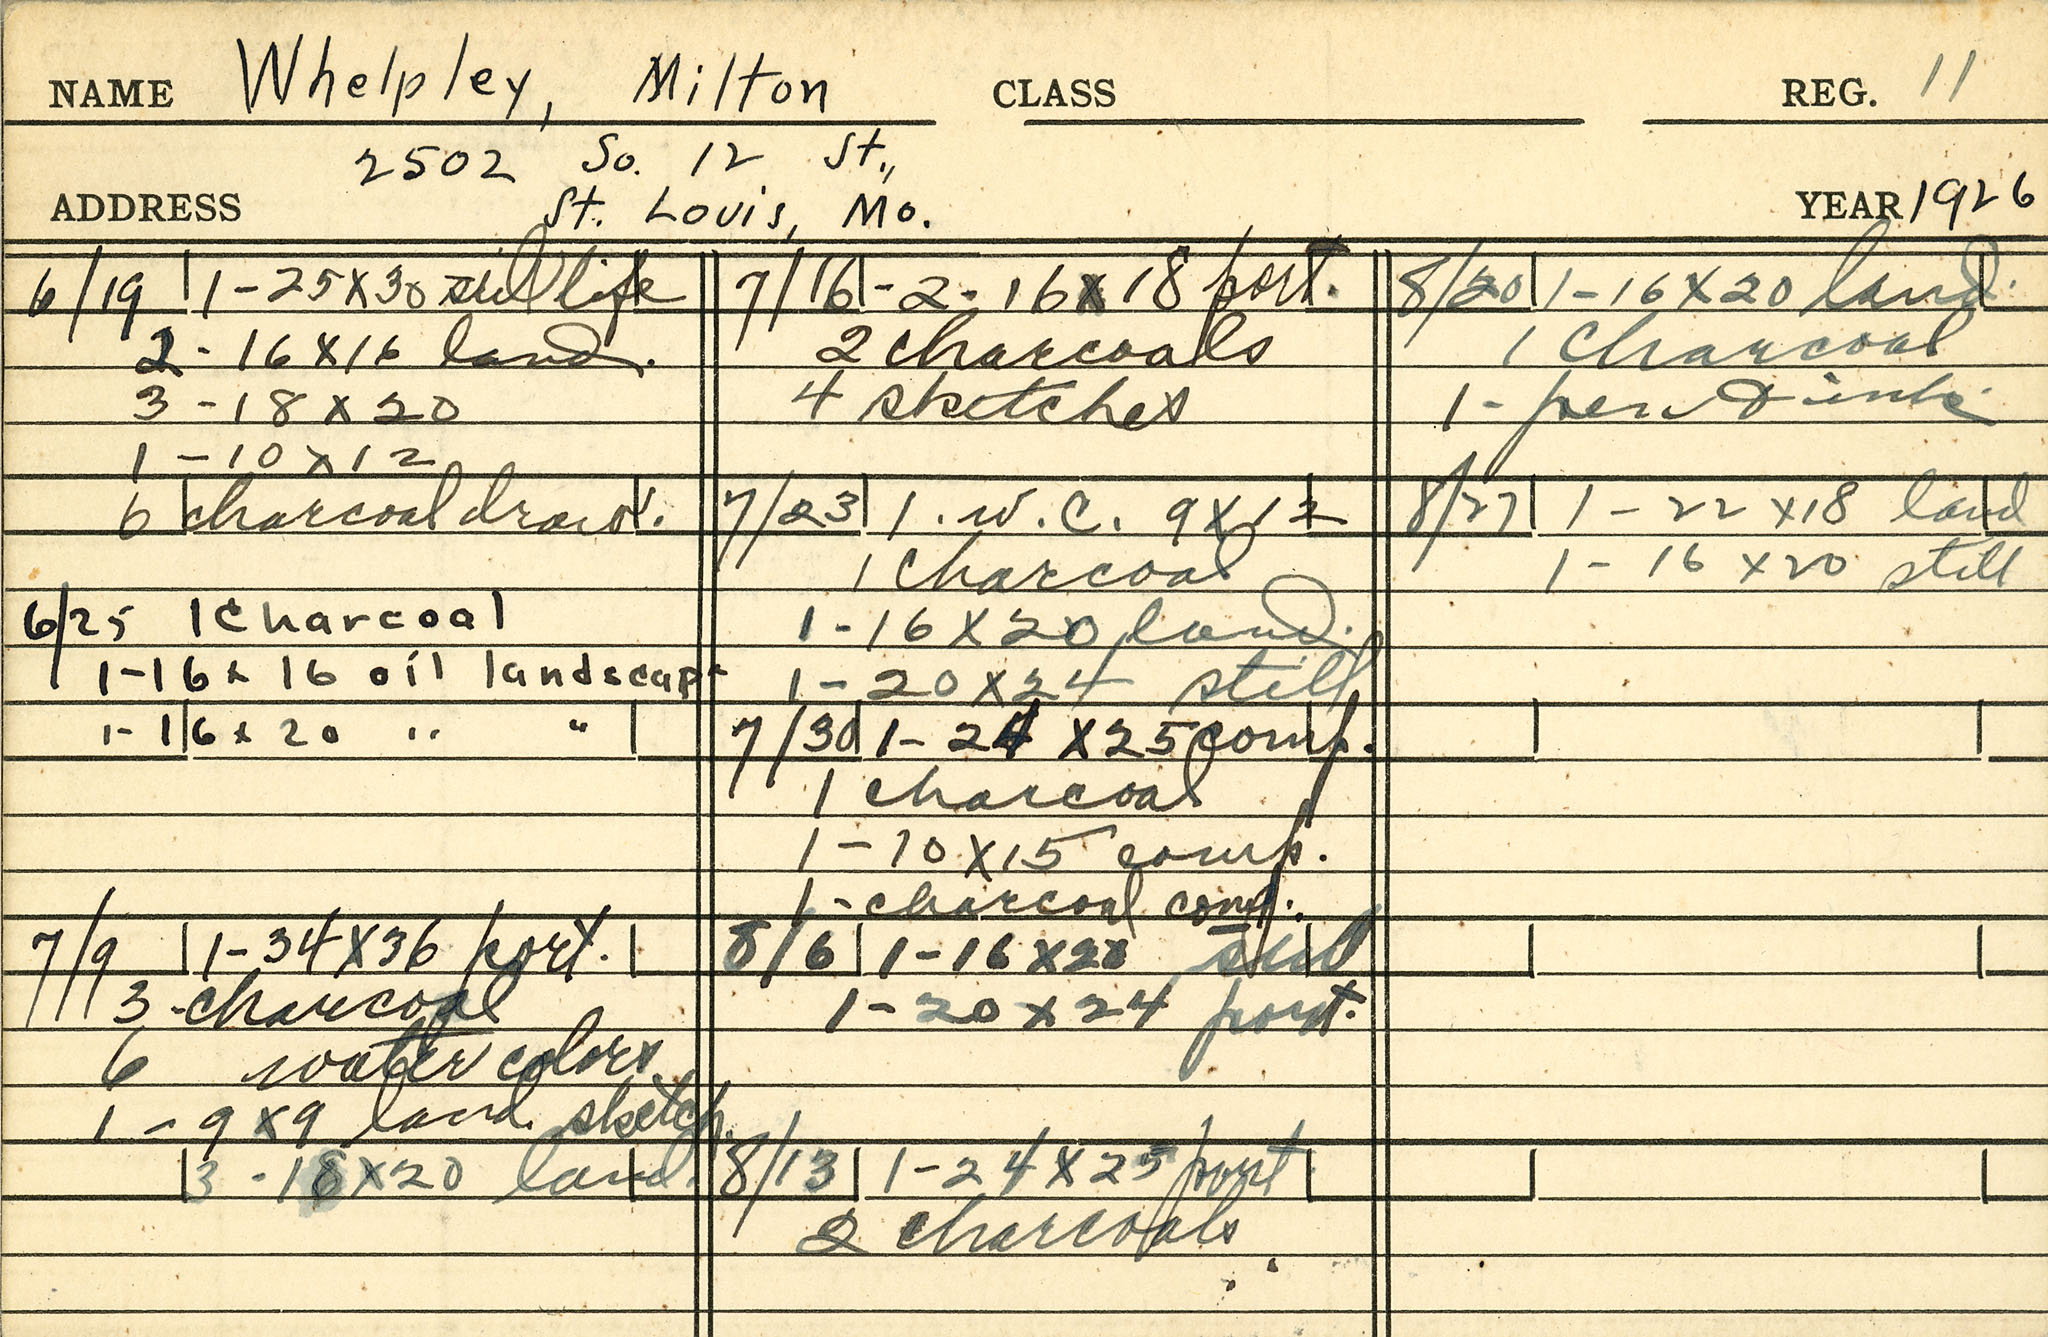 NAME Whelpley, Milton CLASS REG. 11
2502 So. 12 St.,
ADDRESS St. Louis, Mo. YEAR 1926
6/19 1-25X30 still life
2-16X16 land.
3-18X20
1-10X12
6 charcoal draw.
6/25 1 Charcoal
1-16x16 oil landscape
1-16x20 " "
7/9 1-34X36 port.
3-charcoal
6 water colors
1-9X9 land. sketch.
3-18X20 land.
7/16 -2-16X18 port.
2 charcoals
4 sketches
7/23 1. W.C. 9X12
1 Charcoal
1-16X20 land.
1-20X24 still
7/30 1-24X25 comp.
1 charcoal
1-10X15 comp.
1-charcoal comp.
8/6 1-16X20 still
1-20X24 port.
8/13 1-24X25 port
2 charcoals
8/20 1-16X20 land.
1 Charcoal
1-pen & ink
8/27 1-22X18 land
1-16X20 still